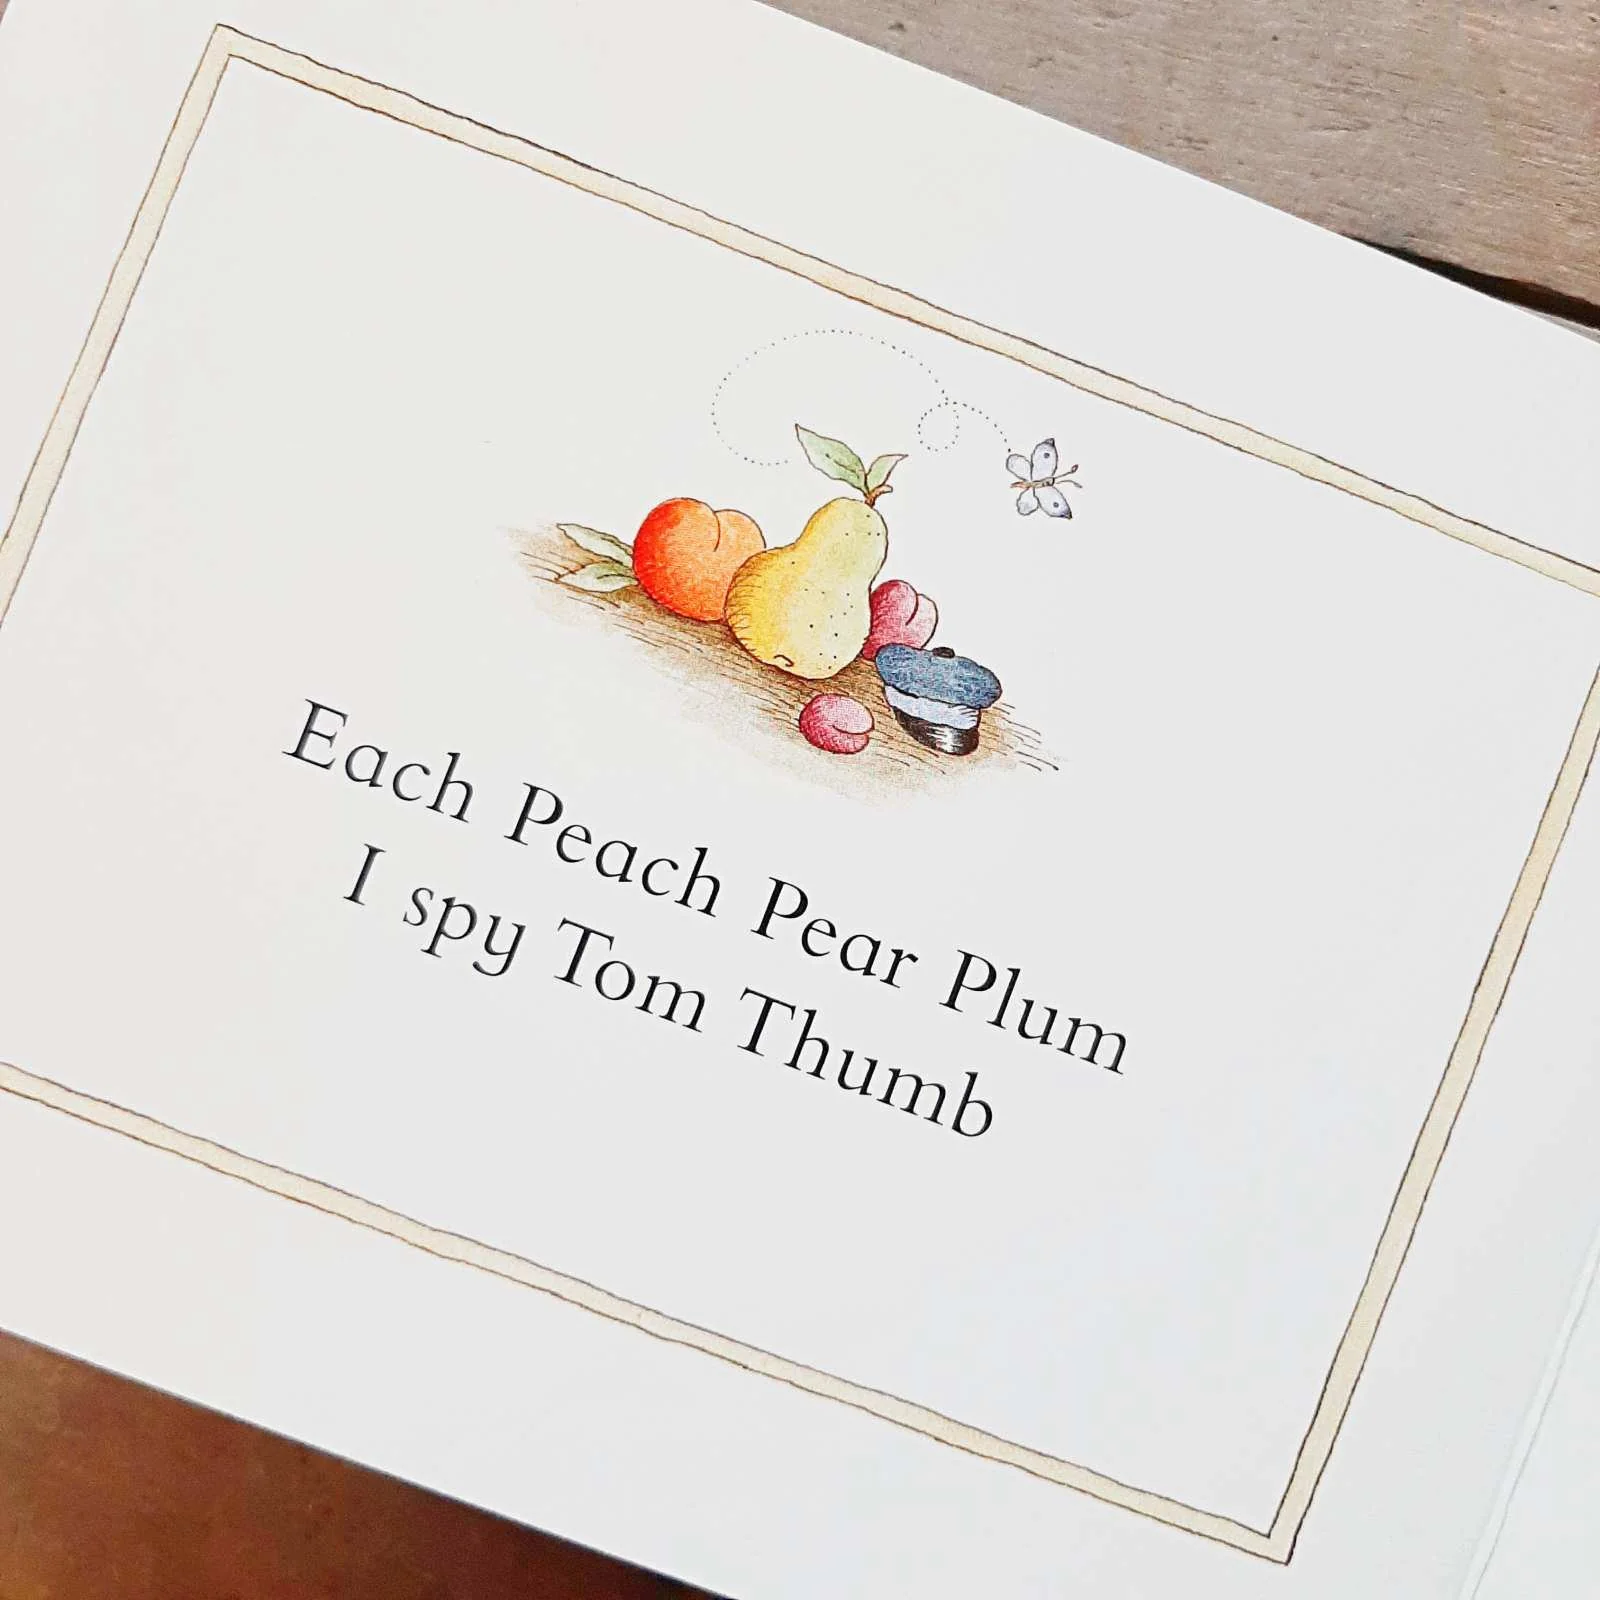 Each Peach Pear Plum
I spy Tom Thumb